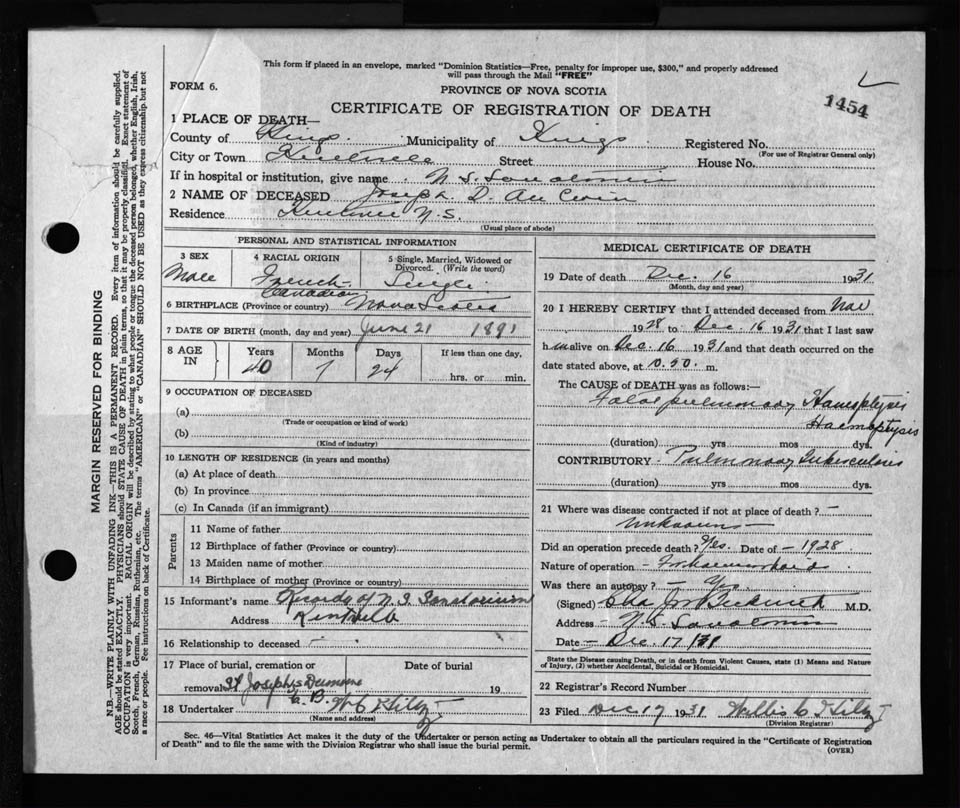 This form if placed in an envelope, marked "Dominion Statistics—Free, penalty for improper use, $300," and properly addressed
will pass through the Mail "FREE"
FORM 6.
PROVINCE OF NOVA SCOTIA
CERTIFICATE OF REGISTRATION OF DEATH
1454
1 PLACE OF DEATH—
County of Kings Municipality of Kings Registered No.
(For use of Registrar General only)
City or Town Kentville Street House No.
If in hospital or institution, give name N.S. Sanatorium
2 NAME OF DECEASED Joseph D.
Residence Kentville N.S.
(Usual place of abode)
PERSONAL AND STATISTICAL INFORMATION
3 SEX
Male
4 RACIAL ORIGIN
French
Canadian
5 Single, Married, Widowed or
Divorced. (Write the word)
Single
6 BIRTHPLACE (Province or country) Nova Scotia
7 DATE OF BIRTH (month, day and year) June 21 1891
8 AGE IN
Years Months Days If less than one day,
40 7 24 hrs. or min.
9 OCCUPATION OF DECEASED
(a)
(Trade or occupation or kind of work)
(b)
(Kind of industry)
10 LENGTH OF RESIDENCE (in years and months)
(a) At place of death
(b) In province
(c) In Canada (if an immigrant)
Parents
11 Name of father
12 Birthplace of father (Province or country)
13 Maiden name of mother
14 Birthplace of mother (Province or country)
15 Informant's name Records of N.S. Sanatorium
Address Kentville
16 Relationship to deceased —
17 Place of burial, cremation or Date of burial
removal St Joseph's 19
C.B.
18 Undertaker
(Name and address)
MEDICAL CERTIFICATE OF DEATH
19 Date of death Dec. 16 1931
(Month, day and year)
20 I HEREBY CERTIFY that I attended deceased from Nov
1928 to Dec. 16 1931 that I last saw
him alive on Dec. 16 1931 and that death occurred on the
date stated above, at 10.50 m.
The CAUSE of DEATH was as follows:—
pulmonary Haemoptysis
Haemoptysis
(duration) yrs mos dys.
CONTRIBUTORY Pulmonary Tuberculosis
(duration) yrs mos dys.
21 Where was disease contracted if not at place of death? —
Unknown —
Did an operation precede death? Yes. Date of — 1928
Nature of operation —
Was there an autopsy? — Yes
(Signed) M.D.
Address — N.S. Sanatorium
Date — Dec. 17/31
State the Disease causing Death, or in death from Violent Causes, state (1) Means and Nature
of Injury, (2) whether Accidental, Suicidal or Homicidal.
22 Registrar's Record Number
23 Filed Dec 17 1931 Willis C
(Division Registrar)
Sec. 46—Vital Statistics Act makes it the duty of the Undertaker or person acting as Undertaker to obtain all the particulars required in the "Certificate of Registration
of Death" and to file the same with the Division Registrar who shall issue the burial permit.
(OVER)
MARGIN RESERVED FOR BINDING
N.B.—WRITE PLAINLY WITH UNFADING INK—THIS IS A PERMANENT RECORD. Every item of information should be carefully supplied.
AGE should be stated EXACTLY. PHYSICIANS should STATE CAUSE OF DEATH in plain terms, so that it may be properly classified. Exact statement of
OCCUPATION is very important. RACIAL ORIGIN will be described by stating to what people or tongue the deceased person belonged, whether English, Irish,
Scotch, French, German, Russian, Ruthenian, etc. The terms "AMERICAN" or "CANADIAN" SHOULD NOT BE USED as they express citizenship but not
a race or people. Fee instructions on back of Certificate.